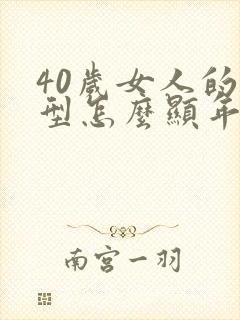 40歲女人的
型怎麼顯年
南宮一羽